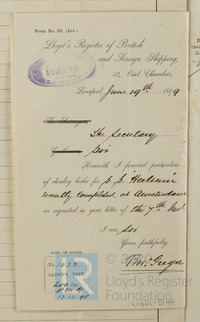 Form No. 80. (Liv.)
Lloyd's Register of British
and Foreign Shipping,
12, Oriel Chambers,
Liverpool, June 19th 1899
The Secretary
Sir
Herewith I forward particulars
of donkey boiler for S.S.
recently completed at Amsterdam
as requested in your letter of the 7th Inst.
I am Sir
Yours faithfully,
LLOYD'S TEST
Lloyd's Register
Foundation